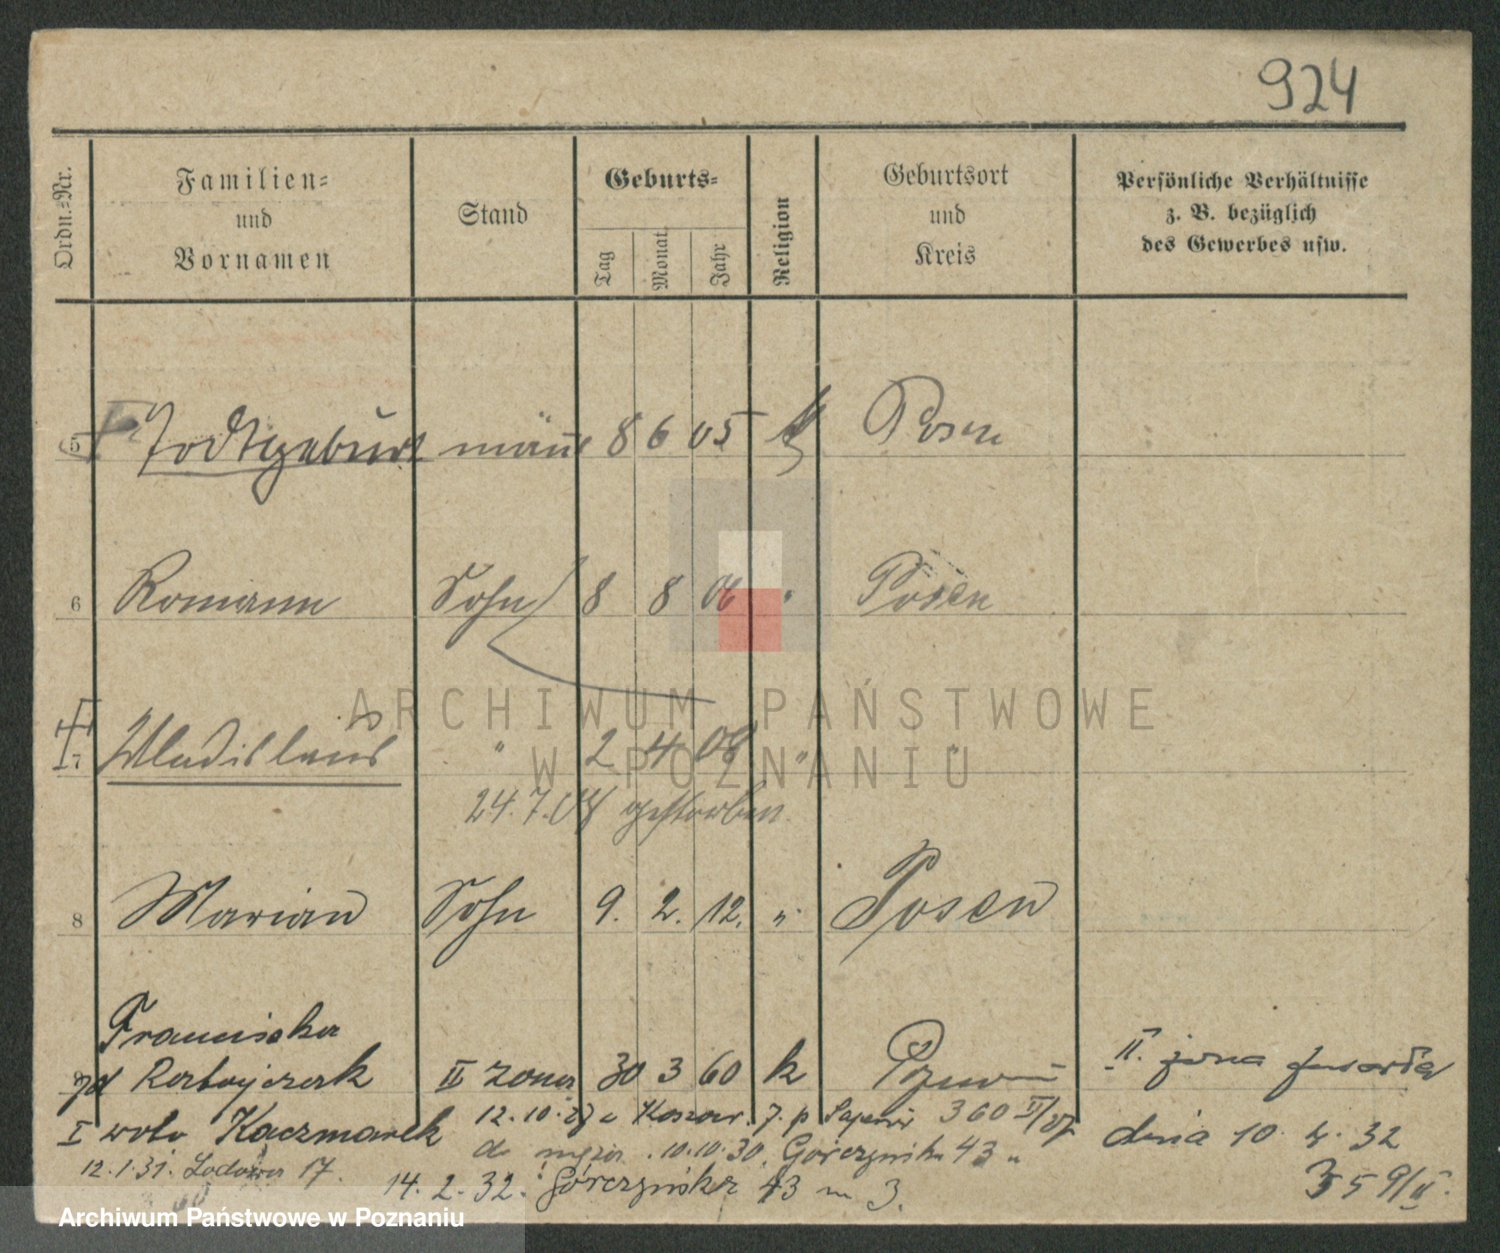 924
Ordn.-Nr.
Familien-
und
Vornamen
Stand
Geburts-
Tag
Monat
Jahr
Religion
Geburtsort
und
Kreis
Persönliche Verhältnisse
z. B. bezüglich
des Gewerbes usw.
5 Todtgeburt männ 8 6 05 k Posen
6 Romann Sohn 8 8 06 " Posen
7 Wladislaus " 2 4 08 " "
24.7.08 gestorben
8 Marian Sohn 9. 2. 12. " Posen
Franciska
Ratajczak II żona 30 3 60 k Poznań II. żona
I voto Kaczmarek 12.10. 7. p 360 dnia 10. 4. 32
do męża 10.10.30. Górczyńska 43
12.1.31. Lodowa 17. 14. 2. 32. Górczyńska 43 m 3. 359/II.
ARCHIWUM PAŃSTWOWE
W POZNANIU
Archiwum Państwowe w Poznaniu